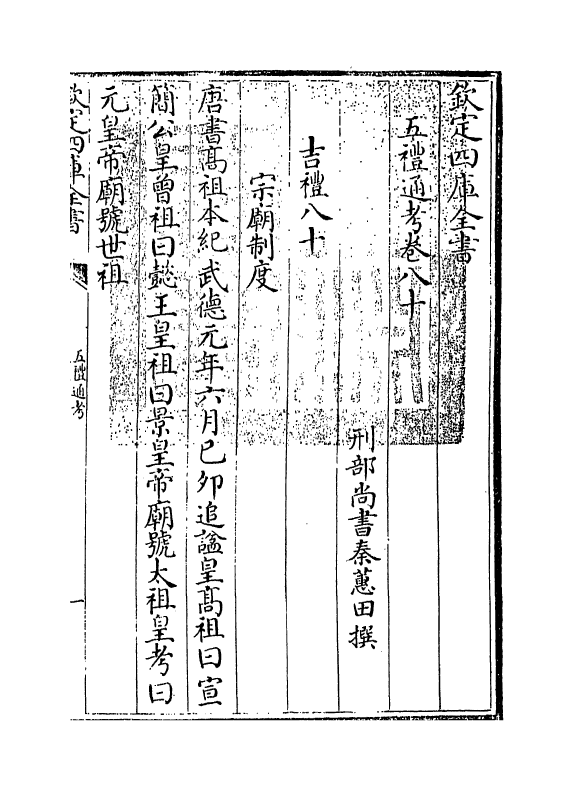 欽定四庫全書
五禮通考卷八十
刑部尚書秦蕙田撰
吉禮八十
宗廟制度
唐書髙祖本紀武德元年六月已夘追諡皇髙祖曰宣
簡公皇曾祖曰懿王皇祖曰景皇帝廟號太祖皇考曰
元皇帝廟號世祖
欽定四庫全書
五禮通考
一